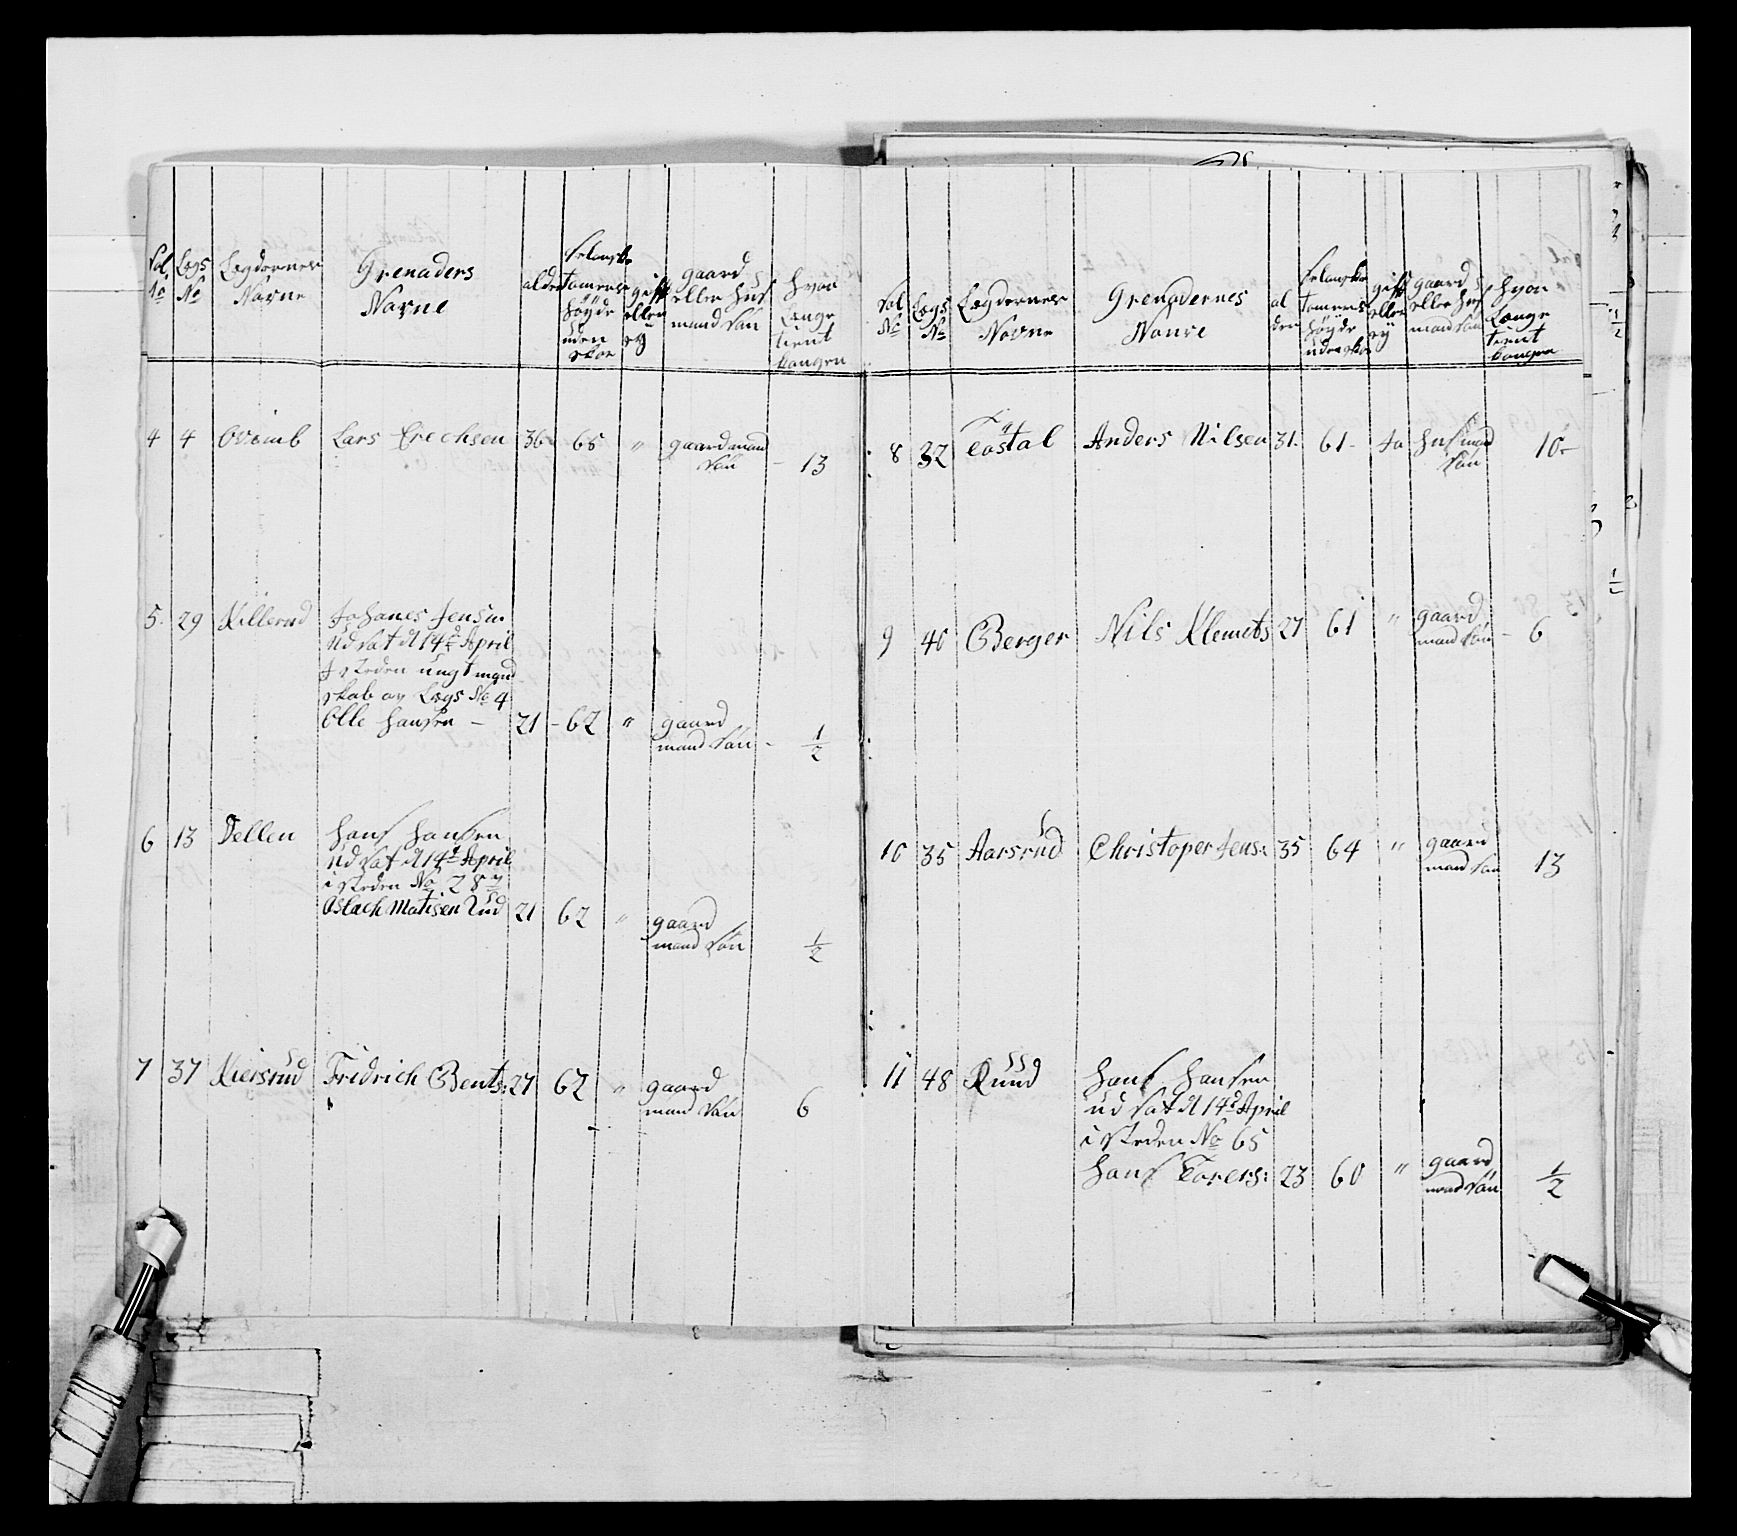 Sol No
Legs No
Legdernes Navne
Grenaders Navne
alder
tomers höyde uden skoe
gift eller ey
gaard eller huus mand Sön
hvor Længe tient kongen
4 4 Lars Erechsen 36 65 " gaardmand Sön 13
5 29 Killerud Johanes Jensen
Ud Sat d 14d April
i steden ungt mand
skab av Legs No 4
Olle Hansen - 21 - 62 " gaard
mand Sön - 1/2
6 13 Dellen Hans Hansen
Ud Sat d 14d April
i steden No 28
Aslach Matisen Rud 21 62 " gaard
mand Sön 1/2
7 37 Kiersrud Fridrich Bents: 27 62 " gaard
mand Sön 6
Sol No
Legs No
Legdernes Navne
Grenadernes Navne
al der
tomers höyde uden skoe
gift eller ey
gaard eller hus mand Sön
hvor Længe tient kongen
8 32 Anders Nilsen 31 61 - Ja husmand
Sön 10 -
9 40 Berger Nils Klemets 27 61 " gaard
mand Sön - 6
10 35 Aarsrud Christoper Jens: 35 64 " gaard
mand Sön 13
11 48 Ruud Hans Hansen
ud Sat d 14d April
i steden No 65
Hans Torers: 23 60 " gaard
mand Sön 1/2